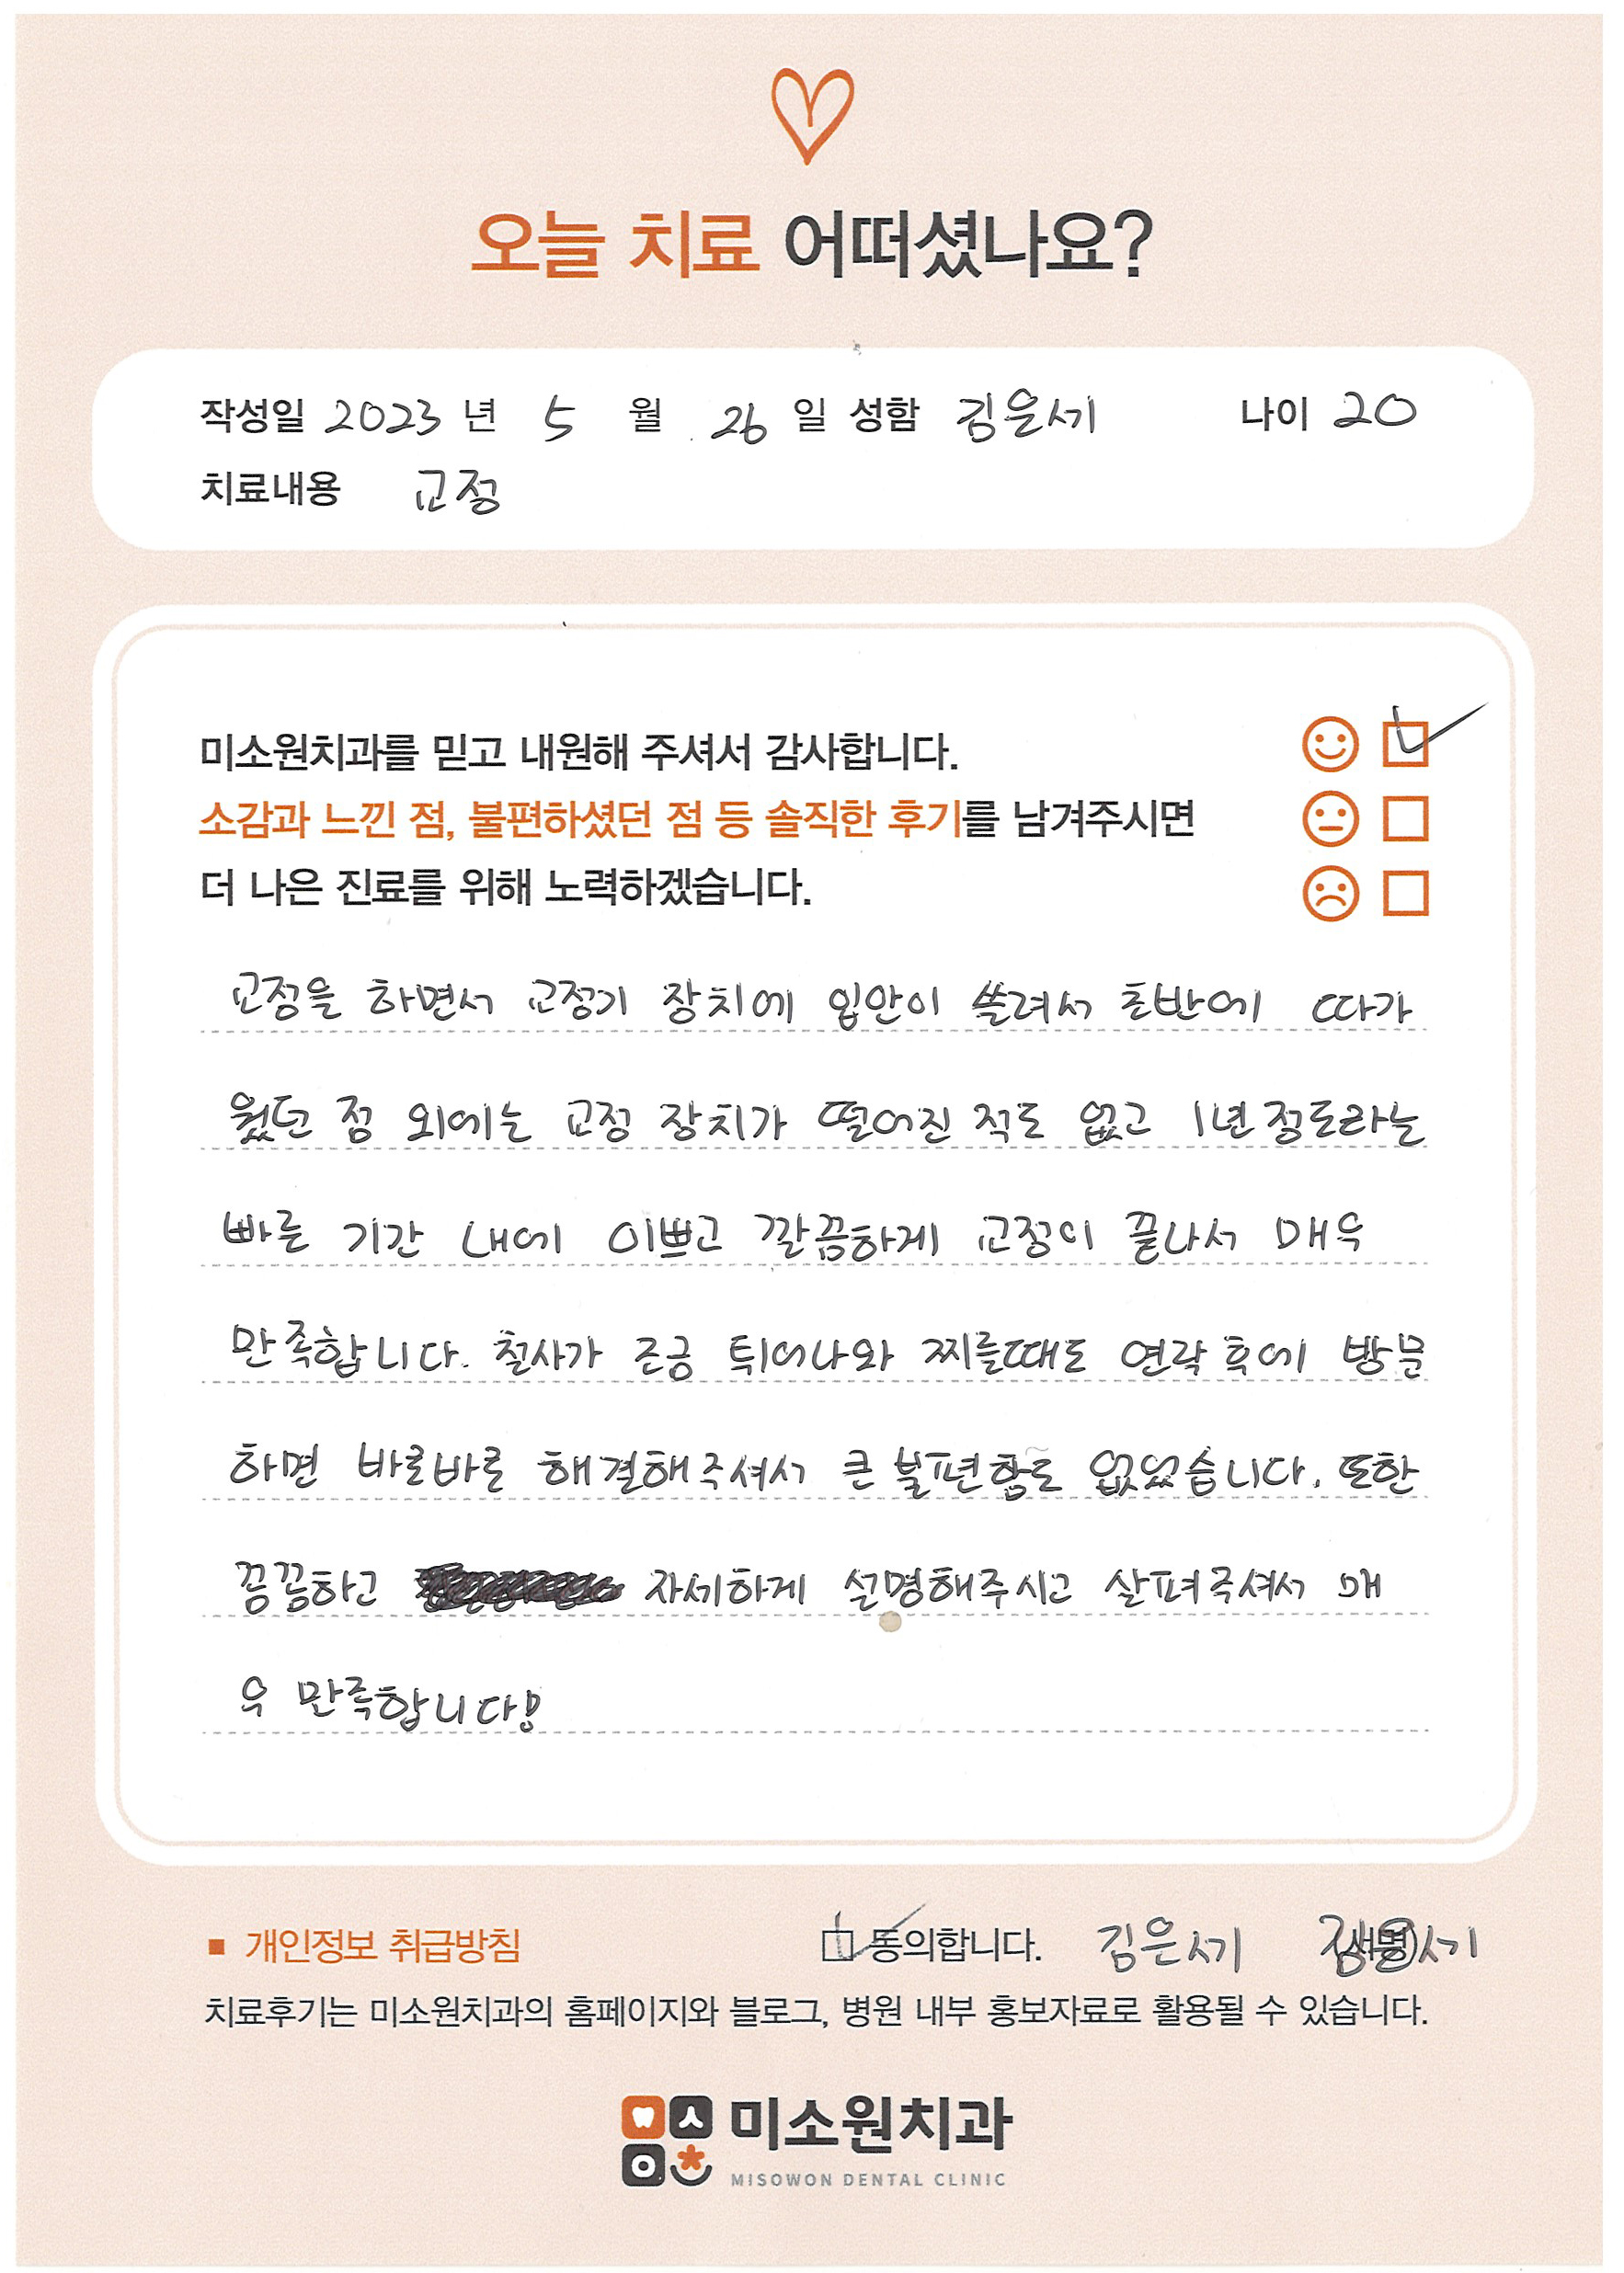 오늘 치료 어떠셨나요?
작성일 2023 년 5 월 26 일 성함 김은세 나이 20
치료내용 교정
미소원치과를 믿고 내원해 주셔서 감사합니다.
소감과 느낀 점, 불편하셨던 점 등 솔직한 후기를 남겨주시면
더 나은 진료를 위해 노력하겠습니다.
교정을 하면서 교정기 장치에 입안이 쓸려서 초반에 따가
웠던 점 외에는 교정 장치가 떨어진 적도 없고 1년 정도라는
빠른 기간 내에 이쁘고 깔끔하게 교정이 끝나서 매우
만족합니다. 철사가 조금 튀어나와 찌를때도 연락 후에 방문
하면 바로바로 해결해주셔서 큰 불편함도 없었습니다. 또한
꼼꼼하고 자세하게 설명해주시고 살펴주셔서 매
우 만족합니다!
■ 개인정보 취급방침 동의합니다. 김은세 김은세 (서명)
치료후기는 미소원치과의 홈페이지와 블로그, 병원 내부 홍보자료로 활용될 수 있습니다.
미소원치과
MISOWON DENTAL CLINIC